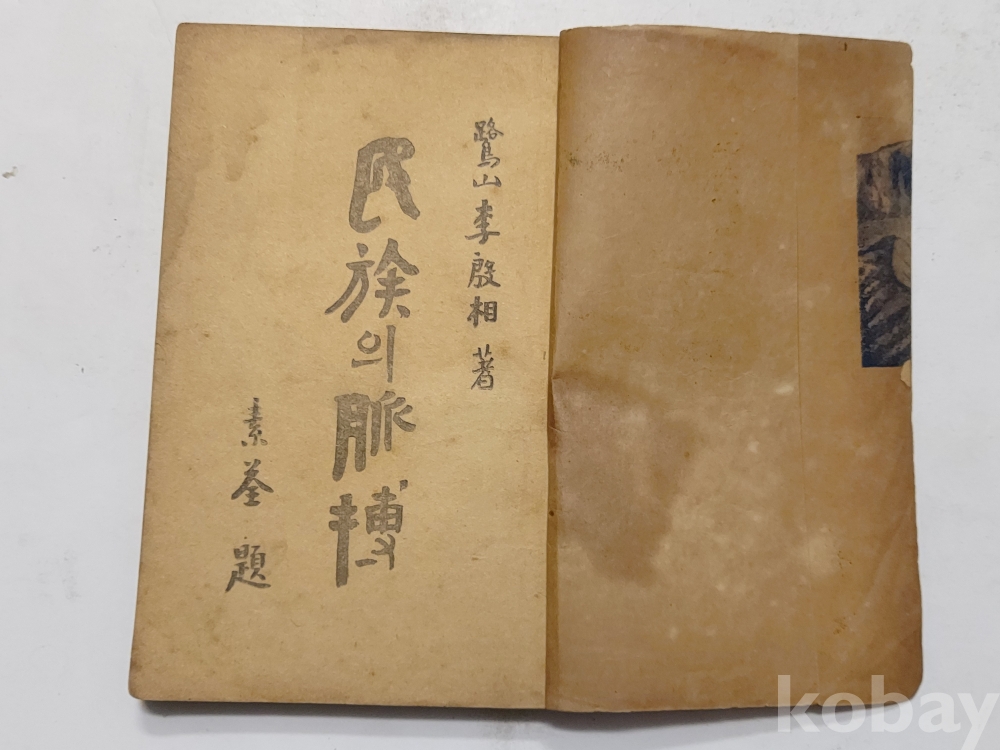 鷺山 李殷相 著
民族의 脈搏
素荃 題
kobay